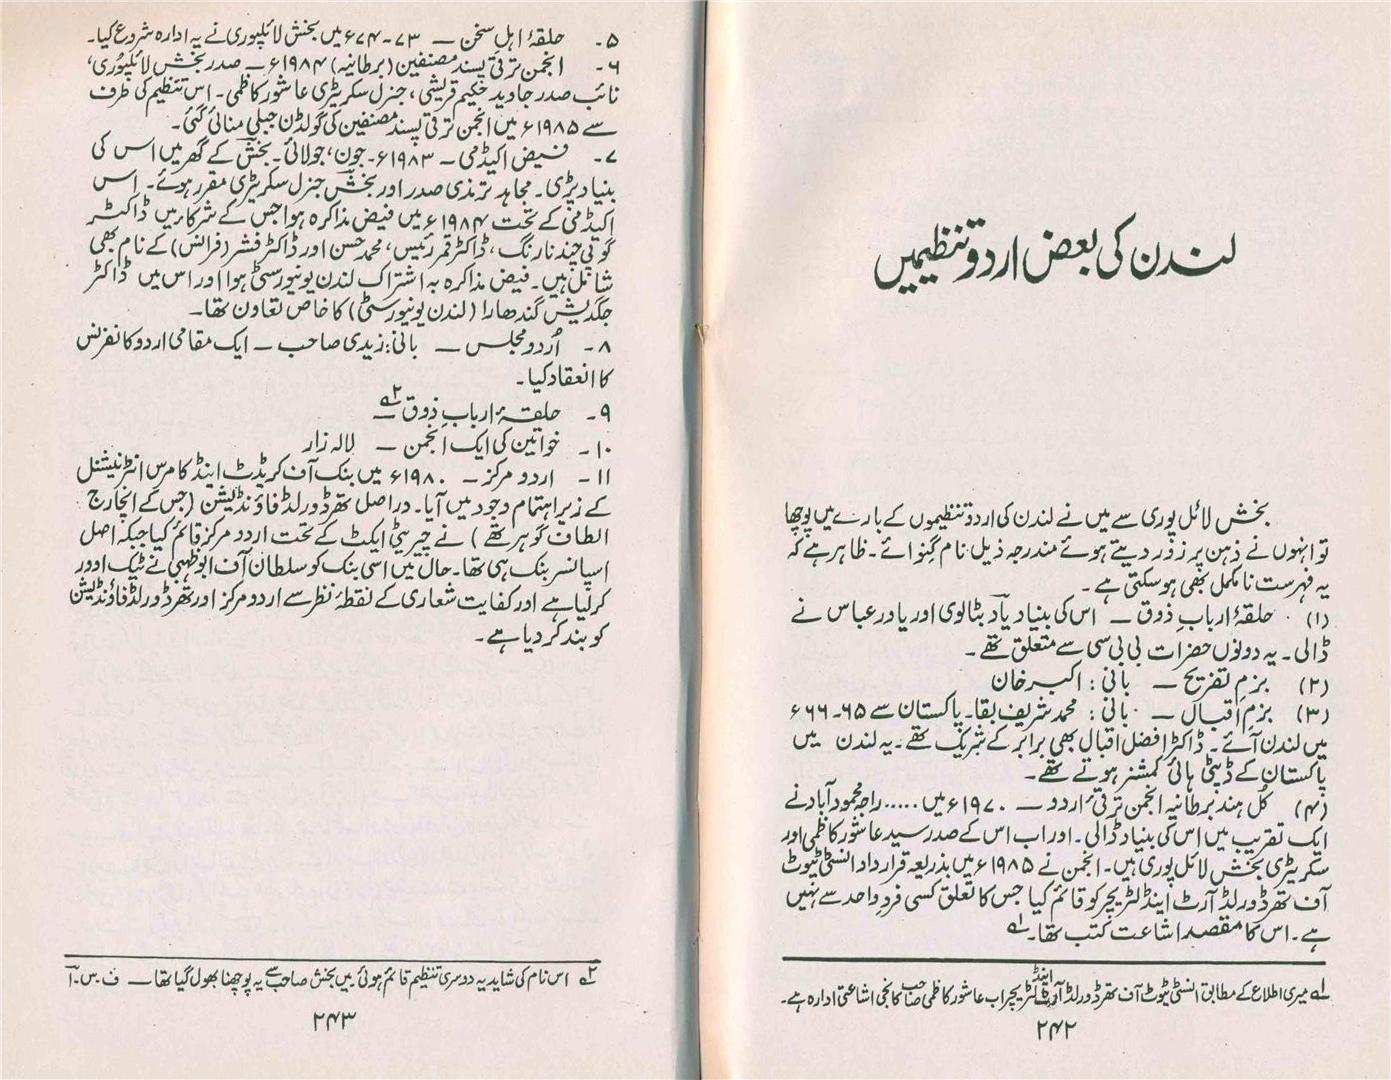 لندن کی بعض اردو تنظیمیں
بخش لائل پوری سے میں نے لندن کی اردو تنظیموں کے بارے میں پوچھا
تو انہوں نے ذہن پر زور دیتے ہوئے مندرجہ ذیل نام گنوائے۔ ظاہر ہے کہ
یہ فہرست نامکمل بھی ہوسکتی ہے۔
(۱) حلقۂ اربابِ ذوق ــ اس کی بنیاد یاد بٹالوی اور یاور عباس نے
ڈالی۔ یہ دونوں حضرات بی بی سی سے متعلق تھے۔
(۲) بزمِ تفریح ــ بانی: اکبر خان
(۳) بزمِ اقبال ــ بانی: محمد شریف بقا۔ پاکستان سے ۶۵۔۶۶ء
میں لندن آئے۔ ڈاکٹر افضل اقبال بھی برابر کے شریک تھے۔ یہ لندن میں
پاکستان کے ڈپٹی ہائی کمشنر ہوتے تھے۔
(۴) کُل ہند برطانیہ انجمن ترقیٔ اردو ــ ۱۹۷۰ء میں ..... راجہ محمود آباد نے
ایک تقریب میں اس کی بنیاد ڈالی۔ اور اب اس کے صدر سید عاشور کاظمی اور
سکریٹری بخش لائل پوری ہیں۔ انجمن نے ۱۹۸۵ء میں بذریعہ قرارداد انسٹی ٹیوٹ
آف تھرڈ ورلڈ آرٹ اینڈ لٹریچر کو قائم کیا جس کا تعلق کسی فردِ واحد سے نہیں
ہے۔ اس کا مقصد اشاعت کتب تھا۔ ؎۱
؎۱ میری اطلاع کے مطابق انسٹی ٹیوٹ آف تھرڈ ورلڈ آرٹ اینڈ لٹریچر اب عاشور کاظمی صاحب کا نجی اشاعتی ادارہ ہے۔
۲۴۲
۵۔ حلقۂ اہلِ سخن ــ ۷۳۔۷۴ء میں بخش لائلپوری نے یہ ادارہ شروع کیا۔
۶۔ انجمن ترقی پسند مصنفین (برطانیہ) ۱۹۸۴ء ــ صدر بخش لائلپوری،
نائب صدر جاوید حکیم قریشی، جنرل سکریٹری عاشور کاظمی۔ اس تنظیم کی طرف
سے ۱۹۸۵ء میں انجمن ترقی پسند مصنفین کی گولڈن جبلی منائی گئی۔
۷۔ فیض اکیڈمی ــ ۱۹۸۳ء۔ جون، جولائی۔ بخش کے گھر میں اس کی
بنیاد پڑی۔ مجاہد ترمذی صدر اور بخش جنرل سکریٹری مقرر ہوئے۔ اس
اکیڈمی کے تحت ۱۹۸۴ء میں فیض مذاکرہ ہوا جس کے شرکار میں ڈاکٹر
گوپی چند نارنگ، ڈاکٹر قمر رئیس، محمد حسن اور ڈاکٹر فشر (فرانس) کے نام بھی
شامل ہیں۔ فیض مذاکرہ بہ اشتراک لندن یونیورسٹی ہوا اور اس میں ڈاکٹر
جگدیش گندھارا (لندن یونیورسٹی) کا خاص تعاون تھا۔
۸۔ اُردو مجلس ــ بانی: زیدی صاحب ــ ایک مقامی اردو کانفرنس
کا انعقاد کیا۔
۹۔ حلقۂ اربابِ ذوق ؎۲ ــ
۱۰۔ خواتین کی ایک انجمن ــ لالہ زار
۱۱۔ اردو مرکز ــ ۱۹۸۰ء میں بنک آف کریڈٹ اینڈ کامرس انٹرنیشنل
کے زیر اہتمام وجود میں آیا۔ دراصل تھرڈ ورلڈ فاؤنڈیشن (جس کے انچارج
الطاف گوہر تھے) نے چیریٹی ایکٹ کے تحت اردو مرکز قائم کیا جبکہ اصل
اسپانسر بنک ہی تھا۔ حال میں اسی بنک کو سلطان آف ابوظہبی نے ٹیک اوور
کرلیا ہے اور کفایت شعاری کے نقطۂ نظر سے اردو مرکز اور تھرڈ ورلڈ فاؤنڈیشن
کو بند کردیا ہے۔
؎۲ اس نام کی شاید یہ دوسری تنظیم قائم ہوئی میں بخش صاحب سے یہ پوچھنا بھول گیا تھا ــ ف۔س۔ا
۲۴۳